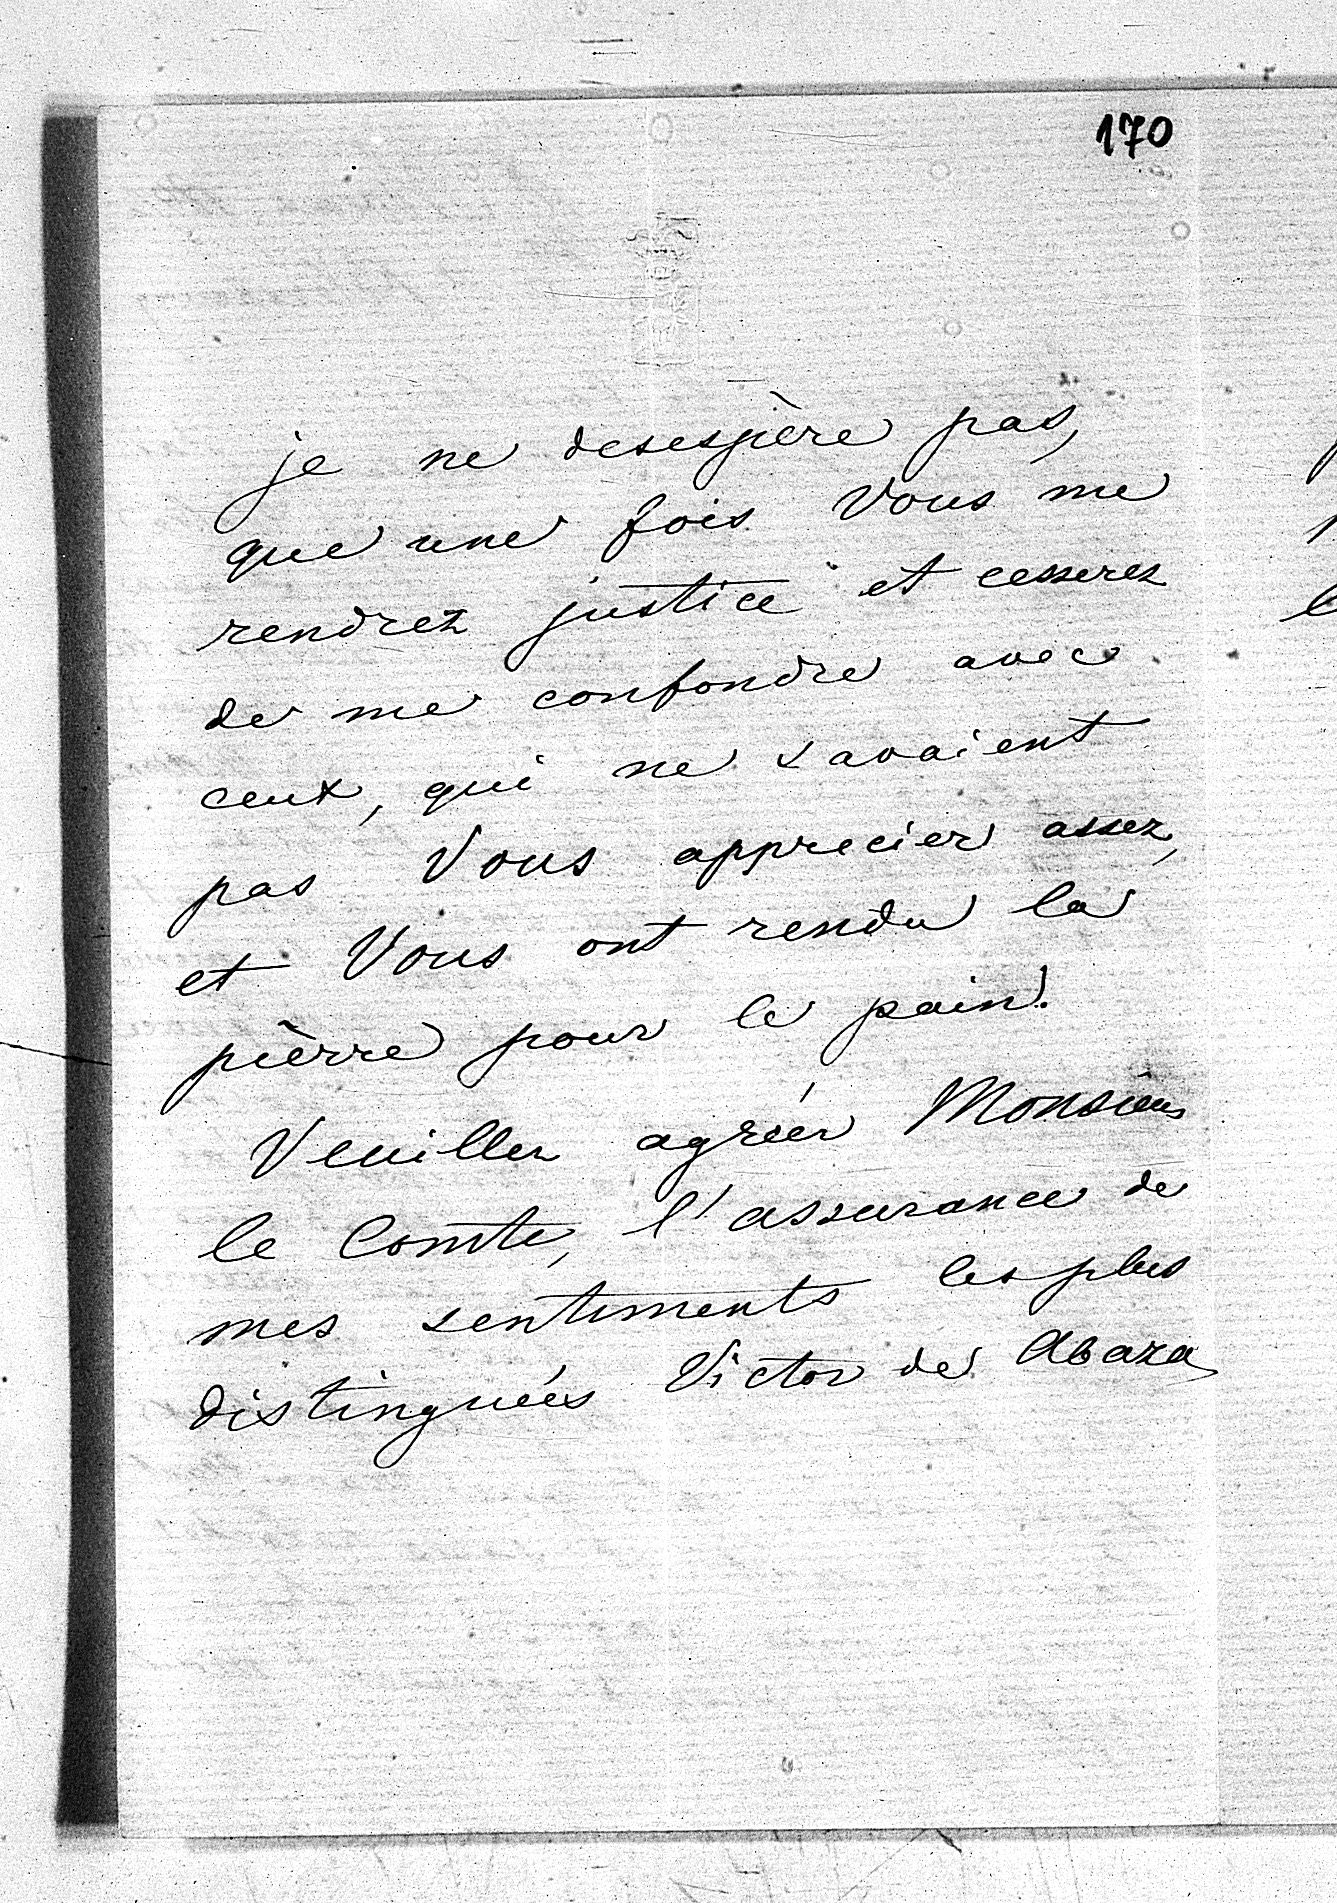 170
je ne desespère pas,
que une fois Vous me
rendrez justice et cesserez
de me confondre avec
ceux, qui ne savaient
pas Vous apprecier assez,
et Vous ont rendu la
pièrre pour le pain!
Veuillez agréer Monsieur
le Comte, l'assurance de
mes sentiments les plus
distinguées Victor de Abaza